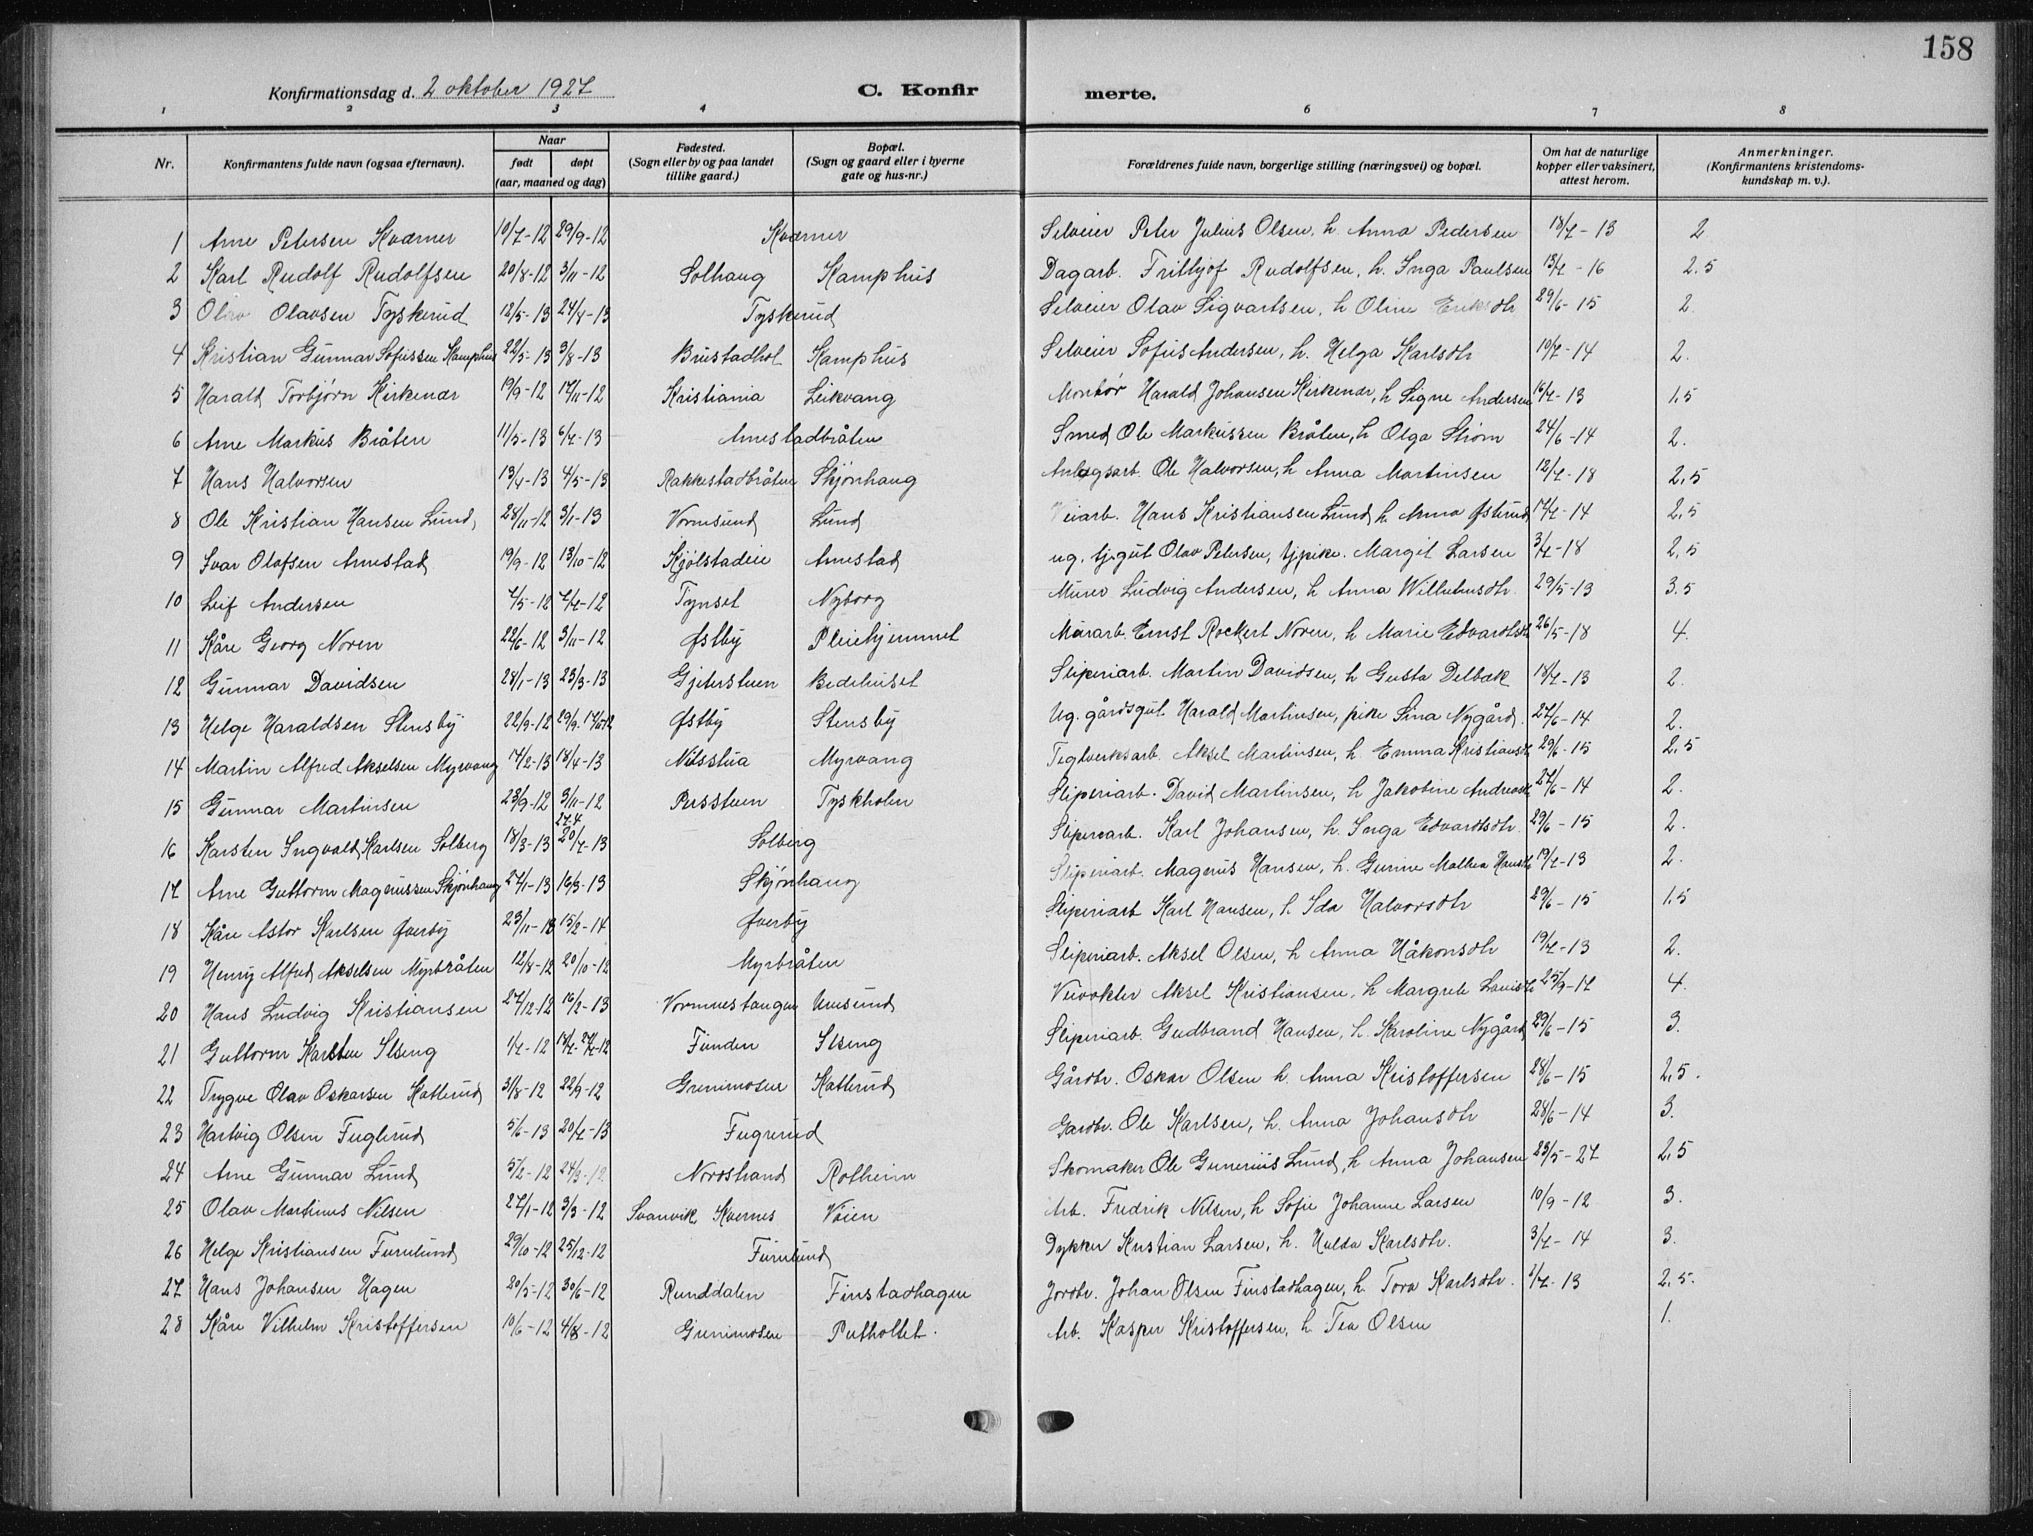 158
Konfirmationsdag d. 2 oktober 1927 C. Konfir merte.
1 2 3 4 6 7 8
Nr. Konfirmantens fulde navn (ogsaa efternavn). Naar født døpt (aar, maaned og dag) Fødested. (Sogn eller by og paa landet tillike gaard.) Bopæl. (Sogn og gaard eller i byerne gate og hus-nr.) Forældrenes fulde navn, borgerlige stilling (næringsvei) og bopæl. Om hat de naturlige kopper eller vaksinert, attest herom. Anmerkninger. (Konfirmantens kristendoms- kundskap m. v.).
1 Arne Petersen Kværner 10/7-12 29/9-12 Kværner Selveier Peter Julius Olsen, h. Anna Pedersen 18/7-13 2
2 Karl Rudolf Rudolfsen 20/8-12 3/11-12 Solhaug Kamphus Dagarb. Frithjof Rudolfsen, h. Inga Paulsen 13/7-16 2.5
3 Olav Olavsen Tyskerud 12/5-13 24/8-13 Tyskerud Selveier Olav Sigvartsen, h Oline Eriksdtr 29/6-15 2
4 Kristian Gunnar Sofussen Kamphus 22/5-13 3/8-13 Brustadhol Kamphus Selveier Sofus Andersen, h. Helga Karlsdtr 19/7-14 2.
5 Harald Torbjørn Kirkenær 19/9-12 17/11-12 Kristiania Leikvang Montør Harald Johansen Kirkenær, h Signe Andersen 16/7-13 1,5
6 Arne Markus Bråten 11/5-13 6/7-13 Arnestadbråten Smed Ole Markussen Bråten, h Olga Strøm 24/6-14 2.
7 Hans Halvorsen 13/4-13 4/5-13 Rakkestadbråten Skjønhaug Anlegsarb. Ole Halvorsen, h Anna Martinsen 12/7-18 2,5
8 Ole Kristian Hansen Lund 28/11-12 3/1-13 Vormsund Lund Veiarb. Hans Kristiansen Lund h Anna Østerud 17/7-14 2,5
9 Ivar Olafsen Arnestad 19/9-12 13/10-12 Kjølstadeie Arnestad ug. tj.gut Olav Petersen, tj.pike. Margit Larsen 3/7-18 2,5
10 Leif Andersen 7/5-12 7/7-12 Tynset Nyborg Murer Ludvig Andersen, h Anna Wilhelmsdtr. 29/5-13 3.5
11 Kåre Georg Noren 22/6-12 3/11-12 Østby Pleiehjemmet Murarb. Ernst Rockert Noren, h Marie Edvardsdtr 26/5-18 4.
12 Gunnar Davidsen 28/1-13 23/3-13 Gjetersteen Bedehuset Sliperiarb. Martin Davidsen, h Gusta Delbæk 18/7-13 2.
13 Helge Haraldsen Stensby 22/9-12 29/9- Østby Stensby Ug. gårdsgut. Harald Martinsen, pike Lina Nygård. 27/6-14 2.
14 Martin Alfred Akselsen Myrvang 17/2-13 13/4-13 Nilsstua Myrvang Teglverksarb. Aksel Martinsen, h. Emma Kristiansdtr 29/6-15 2,5
15 Gunnar Martinsen 23/9-12 3/11-12 Perssteen Tyskholen Sliperiarb. David Martinsen, h Jakobine Andreasdtr 27/6-14 2.
16 Karsten Ingvald Karlsen Solberg 18/3-13 27.4 20/7-13 Solberg Sliperiarb. Karl Johansen, h. Inga Edvardsdtr. 29/6-15 2.
17 Arne Guttorm Magnussen Skjønhaug 27/1-13 16/3-13 Skjønhaug Sliperiarb. Magnus Hansen, h. Gurine Mathea Hansdtr 19/7-13 2.
18 Kåre Astor Karlsen Øverby 23/11-13 15/2-14 Øverby Sliperiarb Karl Hansen, h. Ida Halvorsdtr 29/6-15 1.5
19 Henry Alfred Akselsen Myrbråten 12/8-12 20/10-12 Myrbråten Sliperiarb. Aksel Olsen, h Anna Håkonsdtr 19/7-13 2.
20 Hans Ludvig Kristiansen 27/12-12 16/2-13 Vormnestangen Urnsund Veivokter Aksel Kristiansen, h Margrete 25/9-17 4.
21 Guttorm Karsten Ilseng 1/7-12 Funden Ilseng Sliperiarb. Gudbrand Hansen, h. Karoline Nygård 29/6-15 3.
22 Trygve Olav Oskarsen Katterud 31/8-12 22/9-12 Grenimosen Katterud Gårdbr. Oskar Olsen h. Anna Kristoffersen 28/6-15 2,5.
23 Hartvig Olsen Fuglerud 5/6-13 20/7-13 Fugrerud Gardbr. Ole Karlsen, h. Anna Johansdtr 28/6-14 3.
24 Arne Gunnar Lund 5/2-12 24/3-12 Nordstrand Rotheim Skomaker Ole Gunerius Lund, h Anna Johansen 23/5-27 2,5
25 Olav Martinus Nilsen 27/1-12 3/3-12 Svanvik Kvernes Veien Arb. Fredrik Nilsen, h Sofie Johanne Larsen 10/9-12 3.
26 Helge Kristiansen Furulund 29/10-12 25/12-12 Furulund Dykker Kristian Larsen, h. Hulda Karlsdtr. 3/7-14 3.
27 Hans Johansen Hagen 20/5-12 30/6-12 Runddalen Finstadhagen Jordbr. Johan Olsen Finstadhagen, h. Tora Karlsdtr. 2/7-13 2,5.
28 Kåre Vilhelm Kristoffersen 10/6-12 4/8-12 Grenimosen Putholtet. Arb. Kasper Kristoffersen, h Tea Olsen 1.